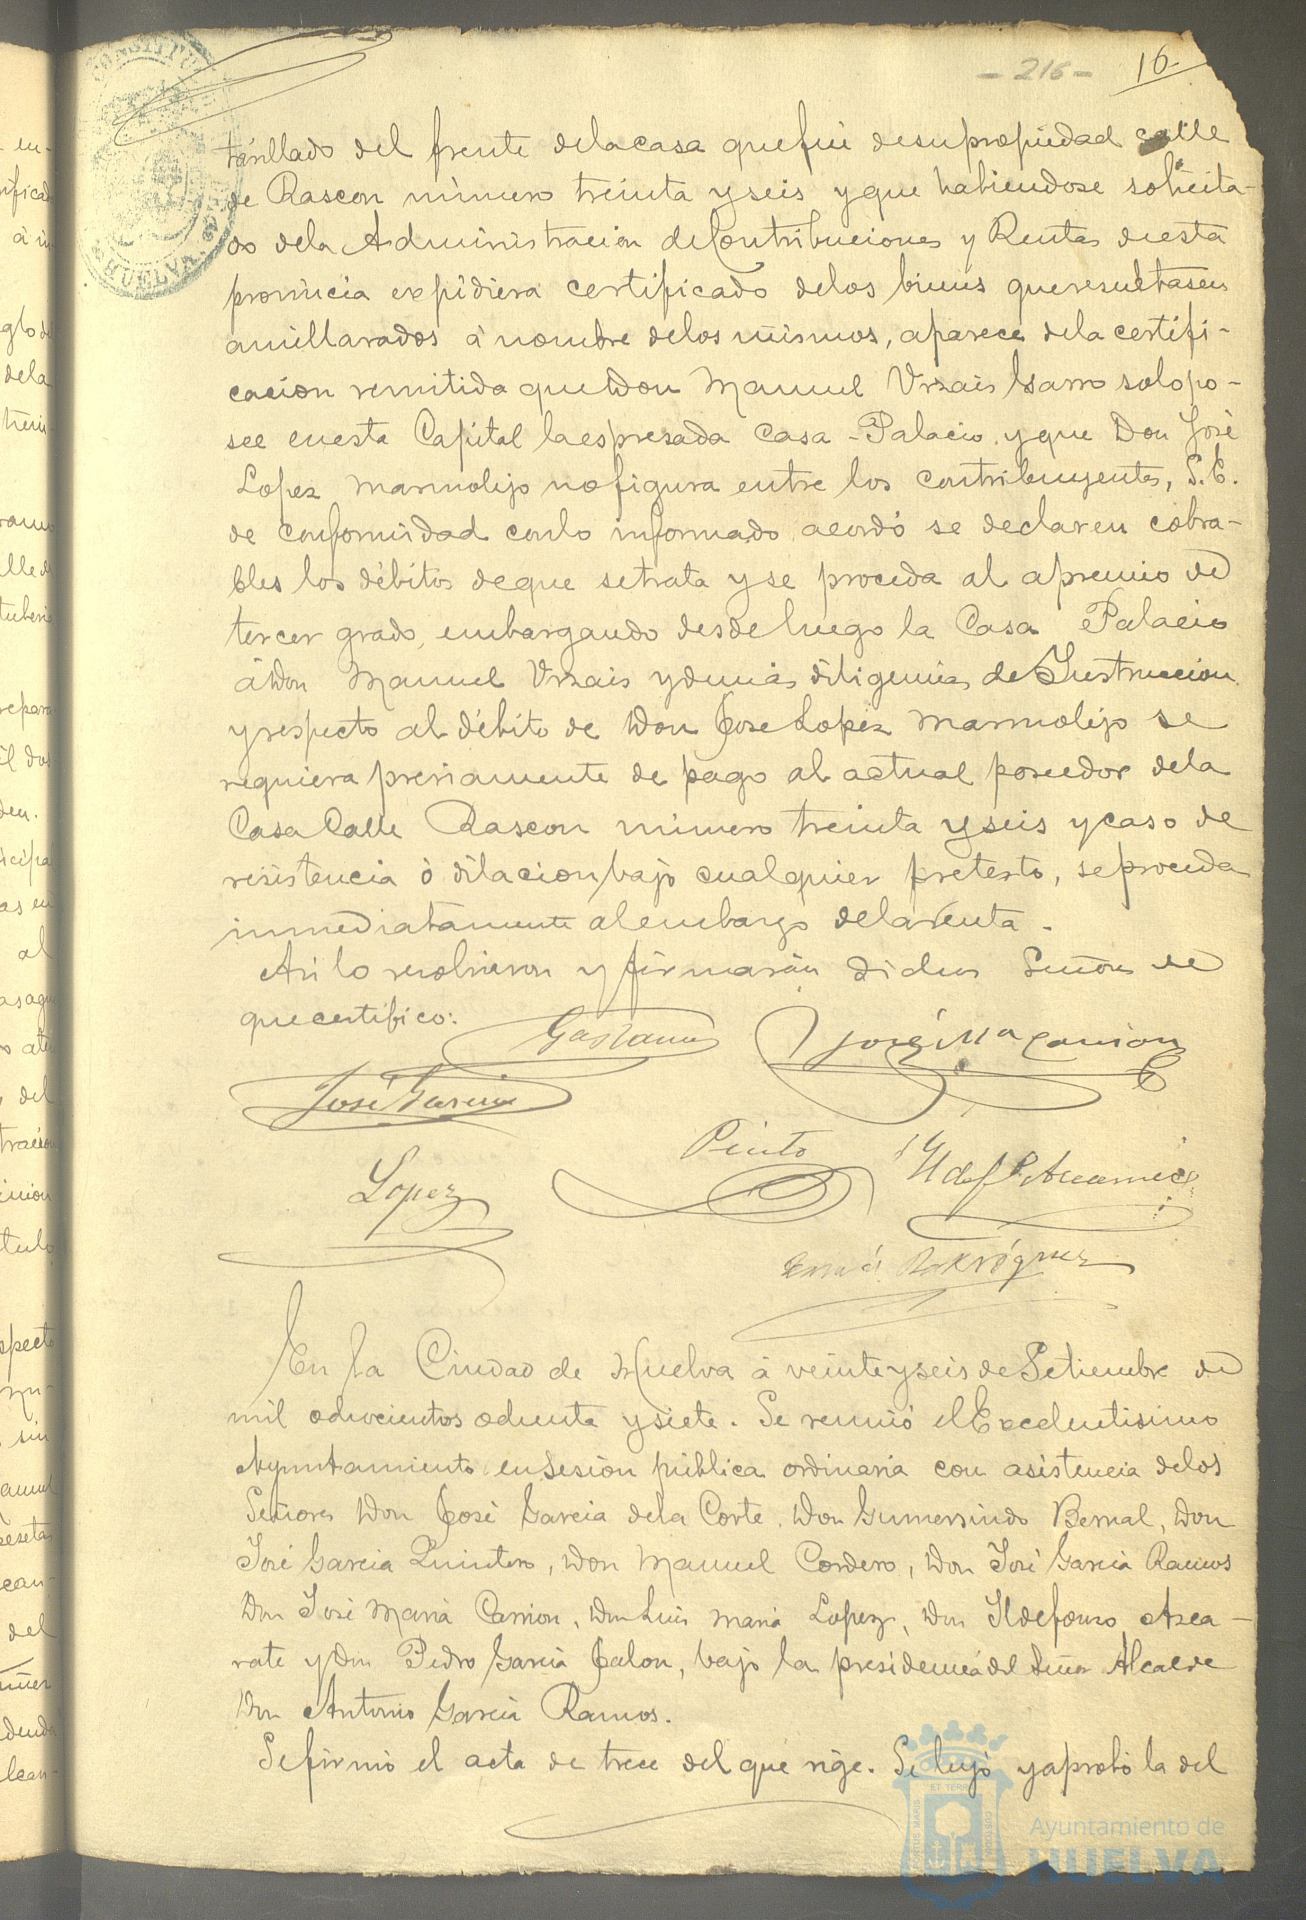 - 216 -
16
tarillado del frente dela casa que fui desu propiedad calle
de Rascon número treinta y seis y que habiendose solicita-
do dela Administracion de Contribuciones y Rentas de esta
provincia expidiera certificado delos bienes que resultasen
amillarados á nombre delos mismos, aparece dela certifi-
cacion remitida que Don Manuel Urzais Garro solo po-
see en esta Capital la espresada Casa-Palacio y que Don José
Lopez Marmolejo no figura entre los contribuyentes, S. E.
de conformidad con lo informado acordó se declaren cobra-
bles los débitos de que se trata y se proceda al apremio de
tercer grado, embargando desde luego la Casa Palacio
á Don Manuel Urzais y demás diligencias de Instruccion
y respecto al débito de Don Jose Lopez Marmolejo se
requiera previamente de pago al actual poseedor dela
Casa Calle Rascon número treinta y seis y caso de
resistencia ó dilacion bajo cualquier pretesto, se proceda
inmediatamente al embargo dela renta.
Asi lo resolvieron y firmarán dichos Señores de
que certifico:
José Mª Carrion
José Garcia
Pinto
Lopez
Rodriguez
En la Ciudad de Huelva á veinte y seis de Setiembre de
mil ochocientos ochenta y siete. Se reunió el Excelentisimo
Ayuntamiento en Sesion pública ordinaria con asistencia delos
Señores Don José Garcia dela Corte, Don Gumersindo Bernal, Don
José Garcia Quintero, Don Manuel Cordero, Don José Garcia Ramos
Don José Maria Carrion, Don Luis Maria Lopez, Don Ildefonso Azca-
rate y Don Pedro Garcia Jalon, bajo la presidencia del Señor Alcalde
Don Antonio Garcia Ramos.
Se firmó el acta de trece del que rige. Se leyó y aprobó la del
Ayuntamiento de
HUELVA